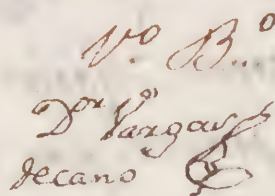 V.º B.º
Dor Vargas
decano